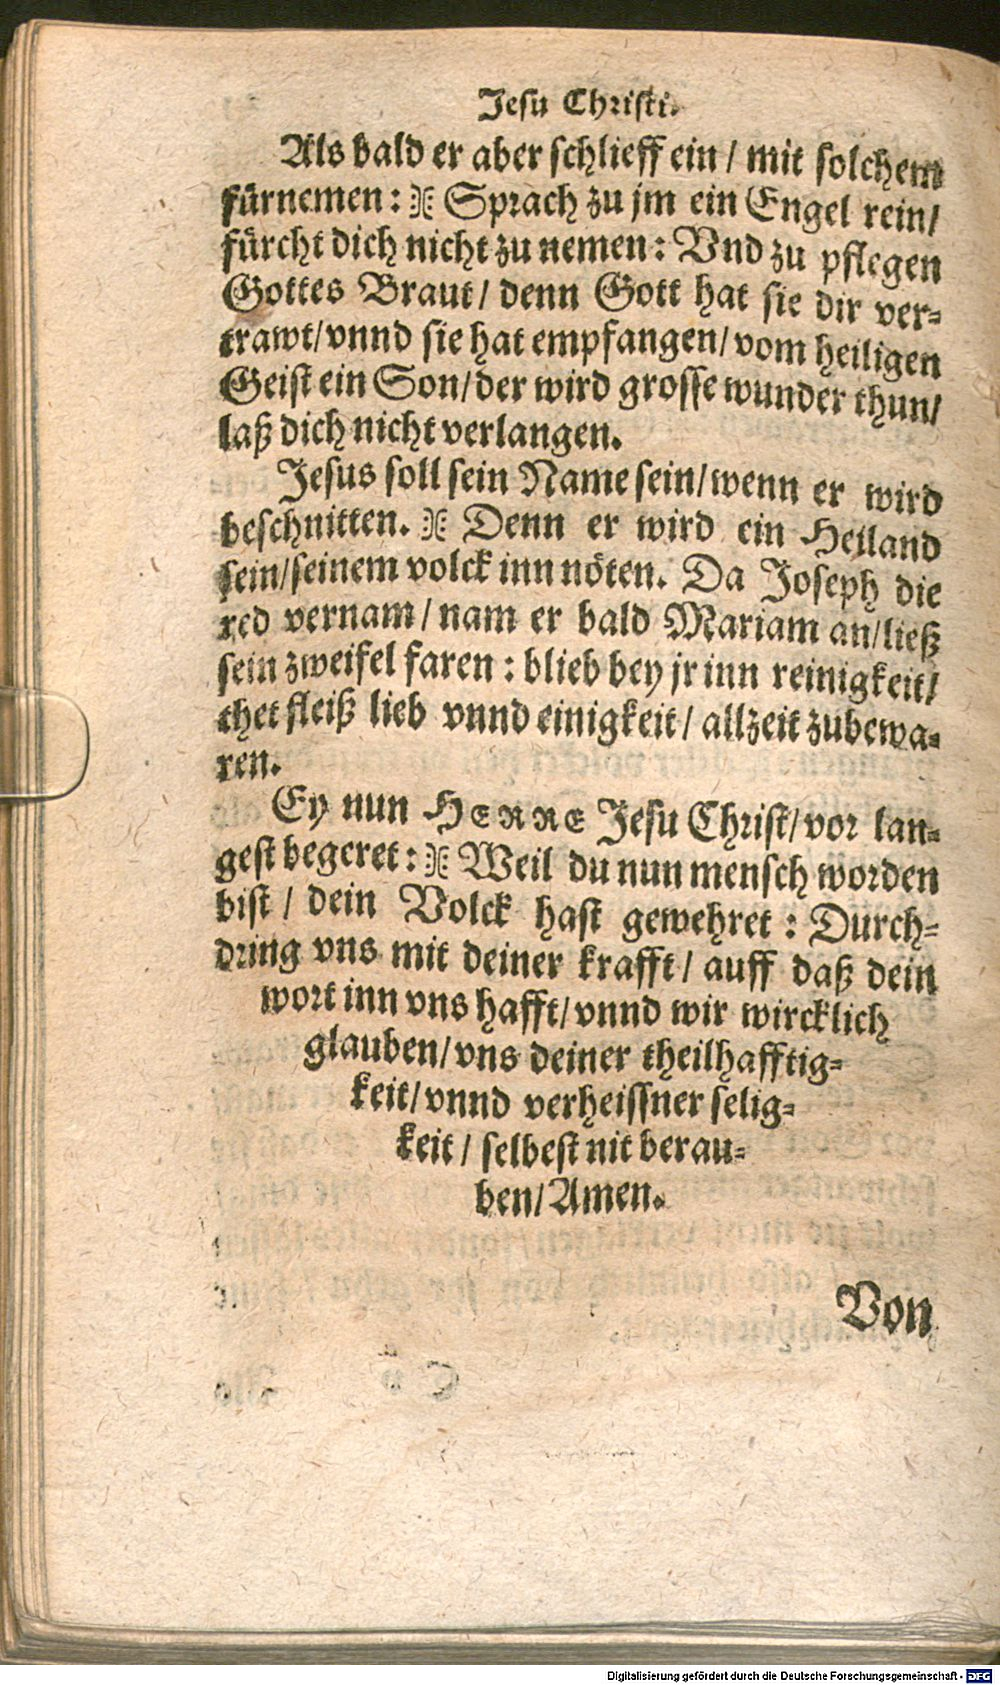 Jesu Christi.
Als bald er aber schlieff ein / mit solchem
fürnemen: Sprach zu jm ein Engel rein/
fürcht dich nicht zu nemen: Vnd zu pflegen
Gottes Braut / denn Gott hat sie dir ver-
trawt/vnnd sie hat empfangen/vom heiligen
Geist ein Son/der wird grosse wunder thun/
laß dich nicht verlangen.
Jesus soll sein Name sein/wenn er wird
beschnitten. Denn er wird ein Heiland
sein/seinem volck inn nöten. Da Joseph die
red vernam / nam er bald Mariam an/ließ
sein zweifel faren : blieb bey jr inn reinigkeit/
thet fleiß lieb vnnd einigkeit / allzeit zubewa-
ren.
Ey nun HERRE Jesu Christ/vor lan-
gest begeret : Weil du nun mensch worden
bist / dein Volck hast gewehret : Durch-
dring vns mit deiner krafft / auff daß dein
wort inn vns hafft/vnnd wir wircklich
glauben/vns deiner theilhafftig-
keit/vnnd verheissner selig-
keit / selbest nit berau-
ben/Amen.
Von
Digitalisierung gefördert durch die Deutsche Forschungsgemeinschaft - DFG